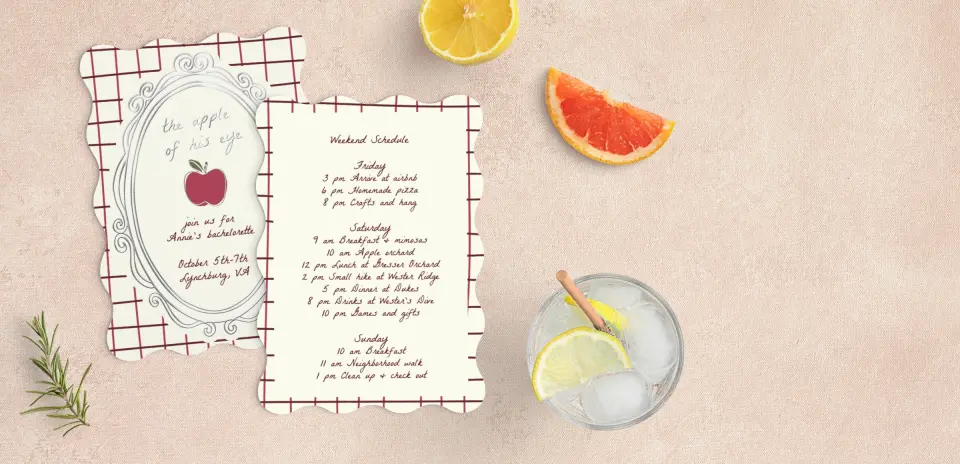 the apple
of his eye
join us for
Annie's bachelorette
October 5th-7th
Lynchburg, VA
Weekend Schedule
Friday
3 pm Arrive at airbnb
6 pm Homemade pizza
8 pm Crafts and hang
Saturday
9 am Breakfast & mimosas
10 am Apple orchard
12 pm Lunch at Gresser Orchard
2 pm Small hike at Wester Ridge
5 pm Dinner at Dukes
8 pm Drinks at Wester's Dive
10 pm Games and gifts
Sunday
10 am Breakfast
11 am Neighborhood walk
1 pm Clean up & check out